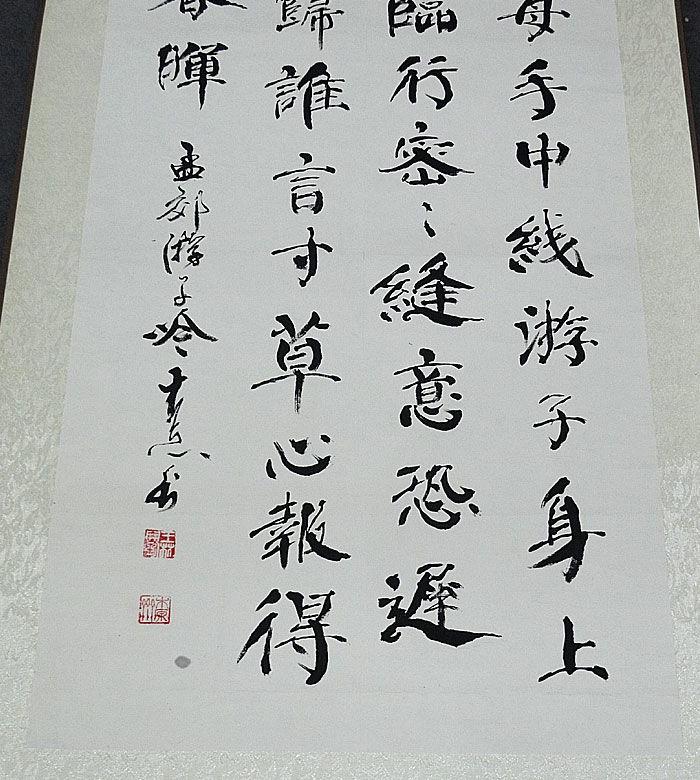 母手中綫游子身上
臨行密々縫意恐遲
歸誰言寸草心報得
春暉
孟郊游子吟